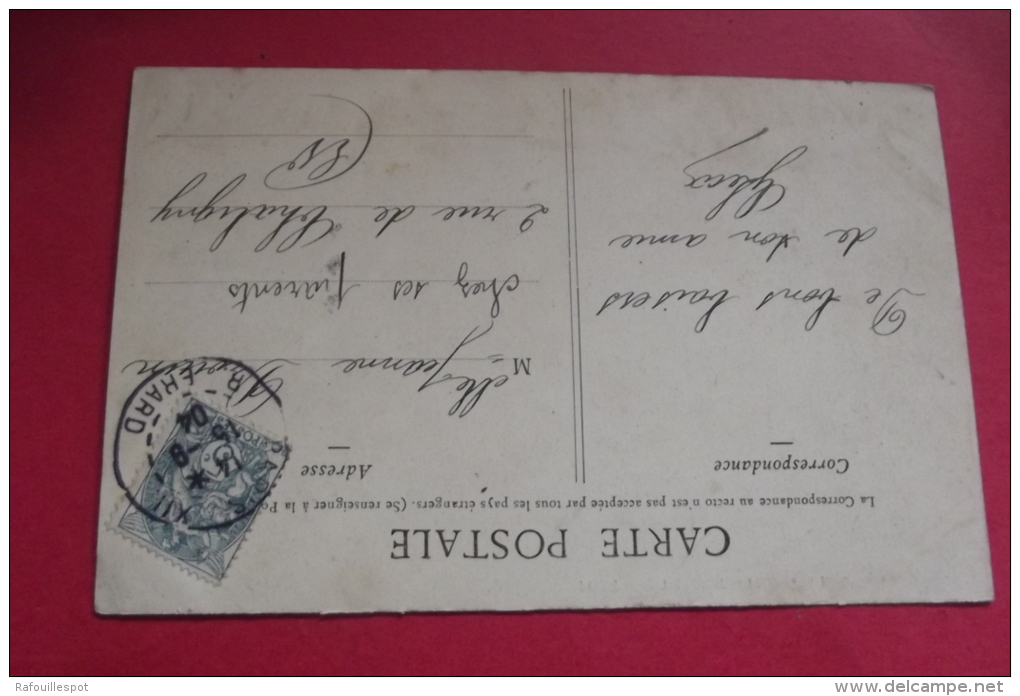 CARTE POSTALE
La Correspondance au recto n'est pas acceptée par tous les pays étrangers. (Se renseigner à la Po
Correspondance
Adresse
De bons baisers
de ton amie
Melle Jeanne
chez ses parents
2 rue de Chaligny
(EV)
PARIS XII
R. EHARD
14 *
04
Rafouillespot
www.delcampe.net